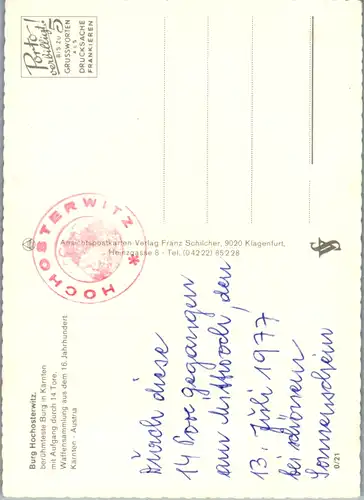 Burg Hochosterwitz.
berühmteste Burg in Kärnten
mit Aufgang durch 14 Tore.
Waffensammlung aus dem 16. Jahrhundert
Kärnten - Austria
HOCHOSTERWITZ *
Porto
verbilligt!
BIS ZU 5
GRUSSWORTEN
ALS
DRUCKSACHE
FRANKIEREN
Ansichtspostkarten-Verlag Franz Schilcher, 9020 Klagenfurt,
Heinzgasse 8 - Tel. (04222) 85228
Durch diese
14 Tore gegangen
am Mittwoch, den
13. Juli 1977
bei schönem
Sonnenschein
0/21